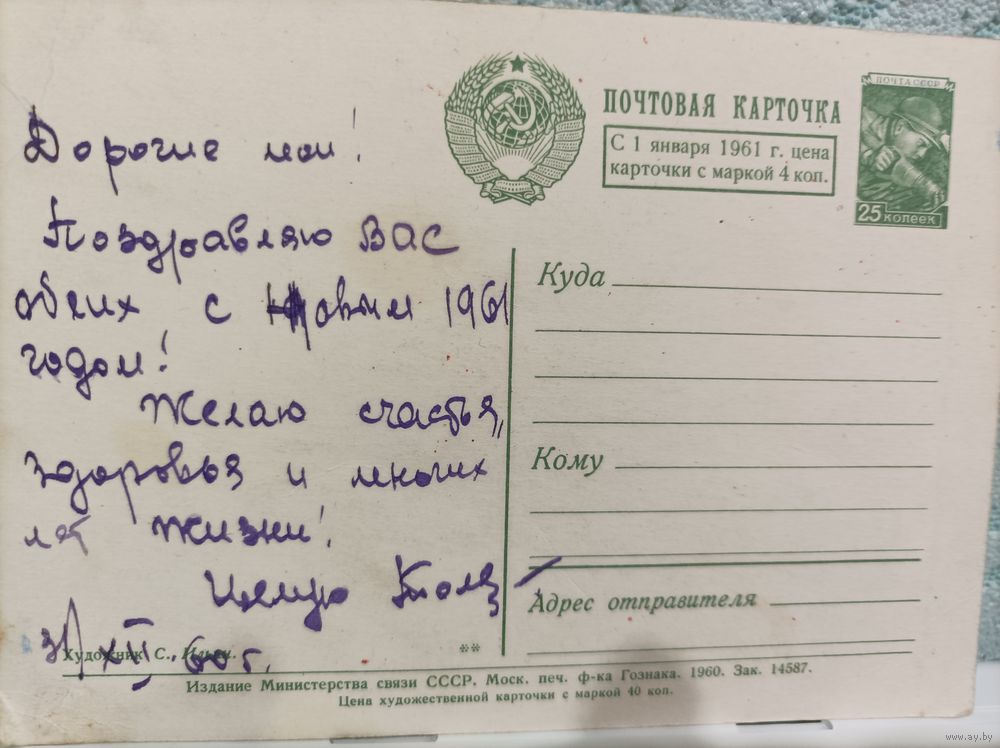 Дорогие мои!
Поздравляю Вас
обеих с Новым 1961
годом!
Желаю счастья,
здоровья и многих
лет жизни!
Целую Толя
31/XII.60 г.
Художник С.
**
ПОЧТОВАЯ КАРТОЧКА
С 1 января 1961 г. цена
карточки с маркой 4 коп.
ПОЧТА СССР
25 КОПЕЕК
Куда
Кому
Адрес отправителя
Издание Министерства связи СССР. Моск. печ. ф-ка Гознака. 1960. Зак. 14587.
Цена художественной карточки с маркой 40 коп.
www.ay.by